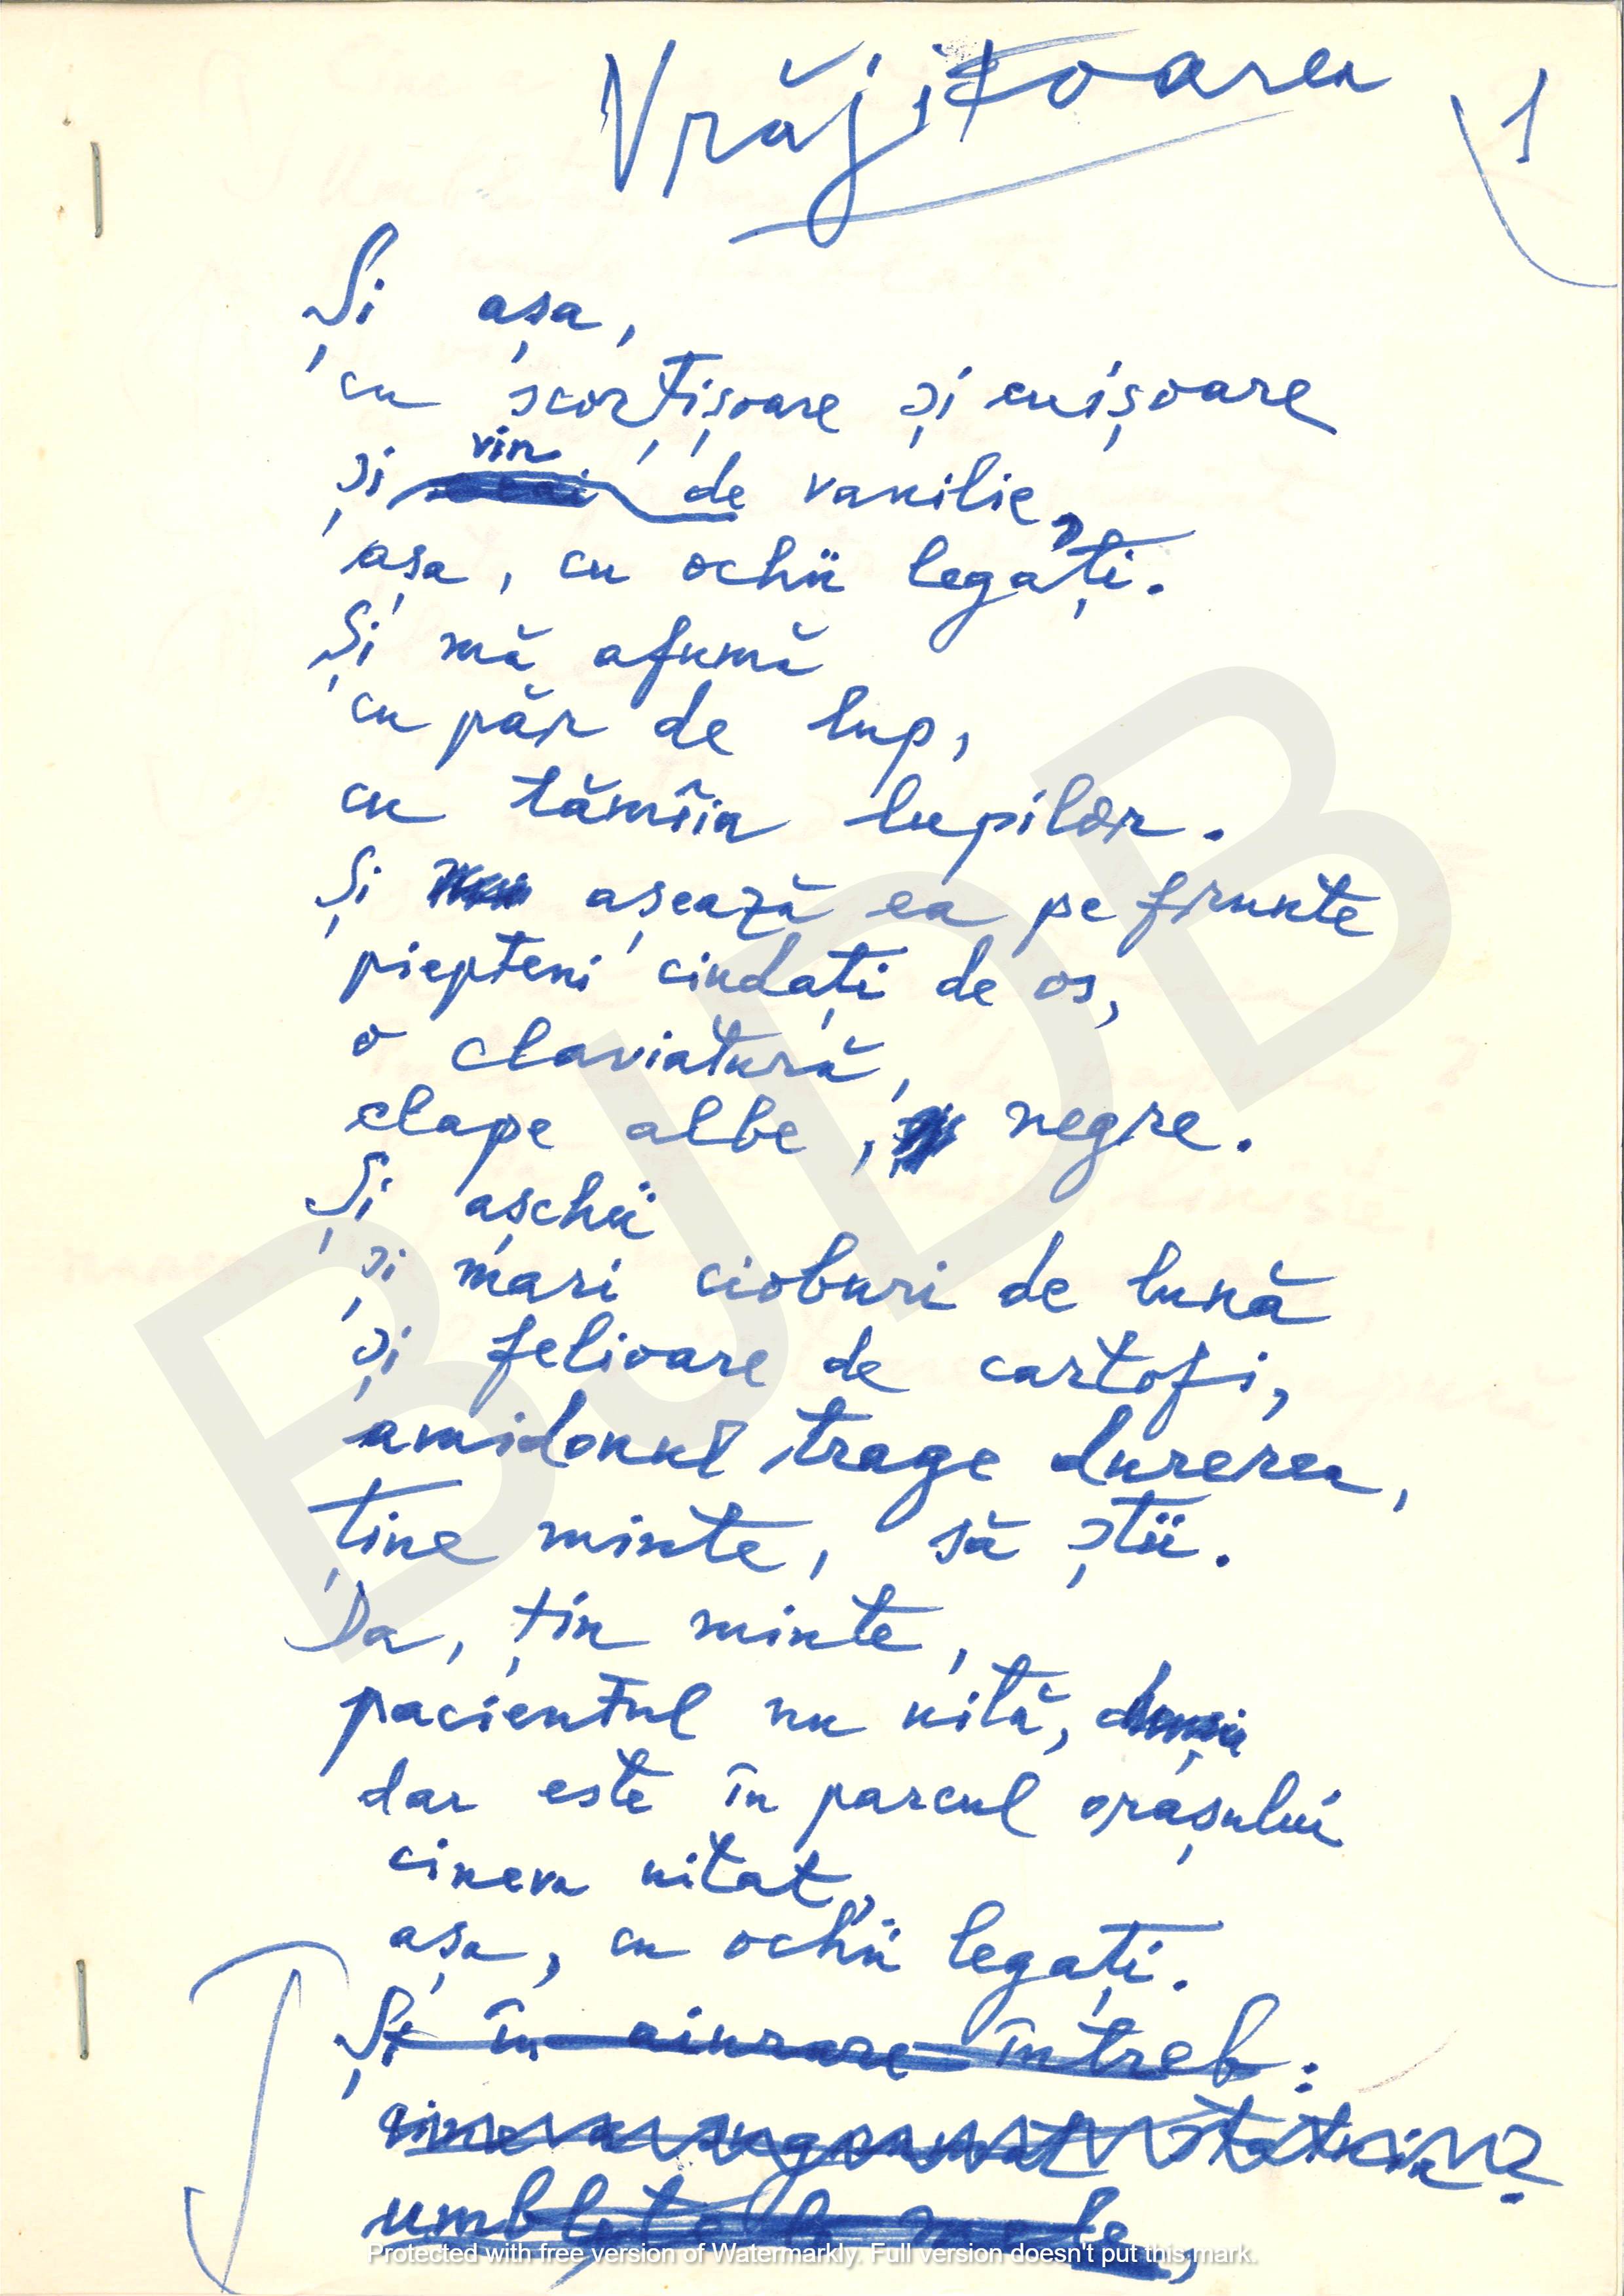 Vrăjitoarea
1
Și așa,
cu scorțișoare și cuișoare
vin
și de vanilie,
așa, cu ochii legați.
Și mă afumă
cu păr de lup,
cu tămîia lupilor.
Și așează ea pe frunte
piepteni ciudați de os,
o claviatură,
clape albe, negre.
Și așchii
și mari cioburi de lună
și felioare de cartofi,
amidonul trage durerea,
ține minte, să știi.
Da, țin minte,
pacientul nu uită,
dar este în parcul orașului
cineva uitat,
așa, cu ochii legați.
Și în aiurare întreb:
cine a
umblete
BJDB
Protected with free version of Watermarkly. Full version doesn't put this mark.